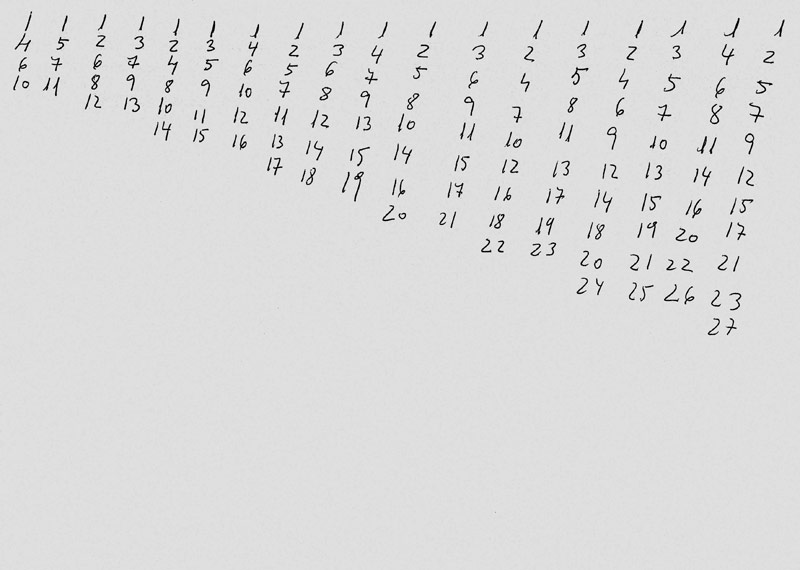 1 1 1 1 1 1 1 1 1 1 1 1 1 1 1 1 1 1
4 5 2 3 2 3 4 2 3 4 2 3 2 3 2 3 4 2
6 7 6 7 4 5 6 5 6 7 5 6 4 5 4 5 6 5
10 11 8 9 8 9 10 7 8 9 8 9 7 8 6 7 8 7
12 13 10 11 12 11 12 13 10 11 10 11 9 10 11 9
14 15 16 13 14 15 14 15 12 13 12 13 14 12
17 18 19 16 17 16 17 14 15 16 15
20 21 18 19 18 19 20 17
22 23 20 21 22 21
24 25 26 23
27